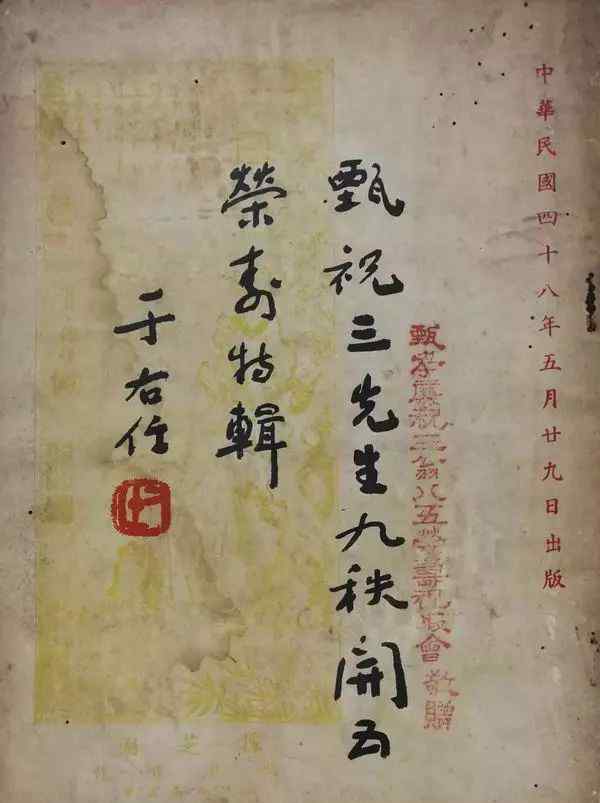 中華民國四十八年五月廿九日出版
甄孝廉祝三翁八五榮壽祝嘏會敬贈
甄祝三先生九秩開五
榮壽特輯
于右任